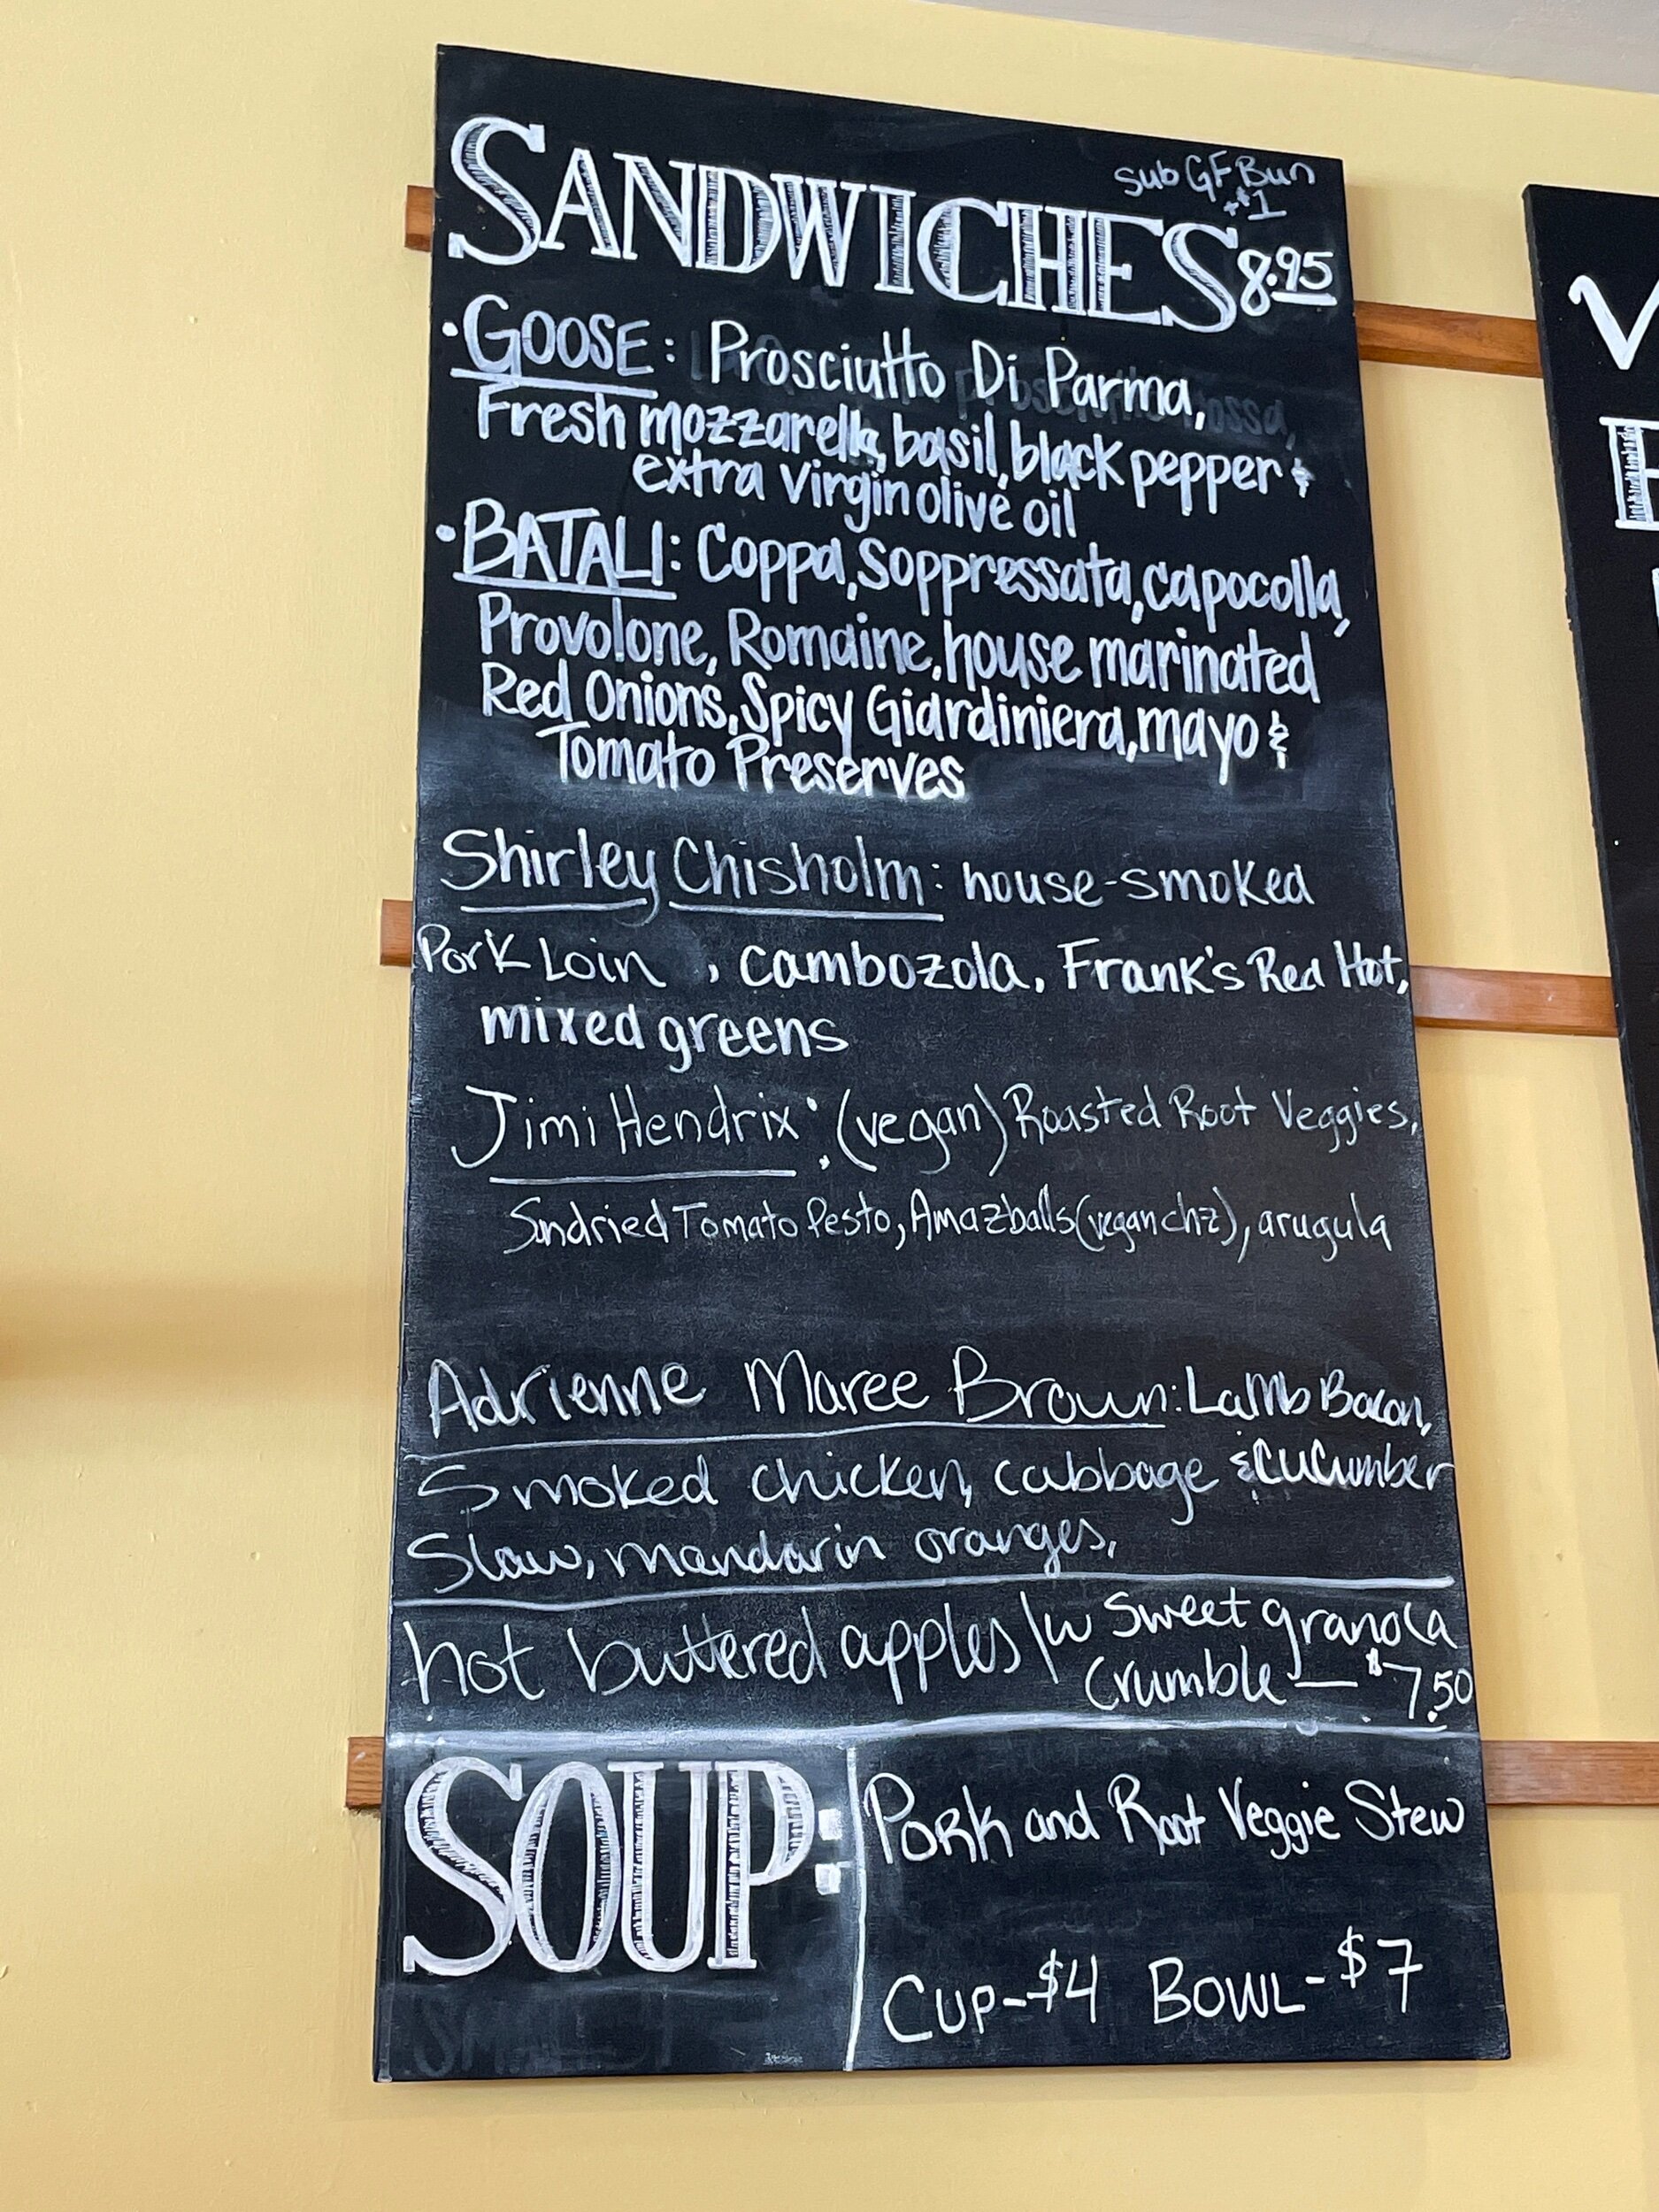 sub GF Bun
+$1
SANDWICHES 8.95
• GOOSE: Prosciutto Di Parma,
Fresh mozzarella, basil, black pepper &
extra virgin olive oil
• BATALI: Coppa, Soppressata, capocolla,
Provolone, Romaine, house marinated
Red Onions, Spicy Giardiniera, mayo &
Tomato Preserves
Shirley Chisholm: house-smoked
Pork Loin, cambozola, Frank's Red Hot,
mixed greens
Jimi Hendrix: (vegan) Roasted Root Veggies,
Sundried Tomato Pesto, Amazballs (vegan chz), arugula
Adrienne Maree Brown: Lamb Bacon,
Smoked chicken, cabbage & cucumber
Slaw, mandarin oranges,
hot buttered apples /w Sweet granola
Crumble — $7.50
SOUP: Pork and Root Veggie Stew
CUP-$4 BOWL-$7